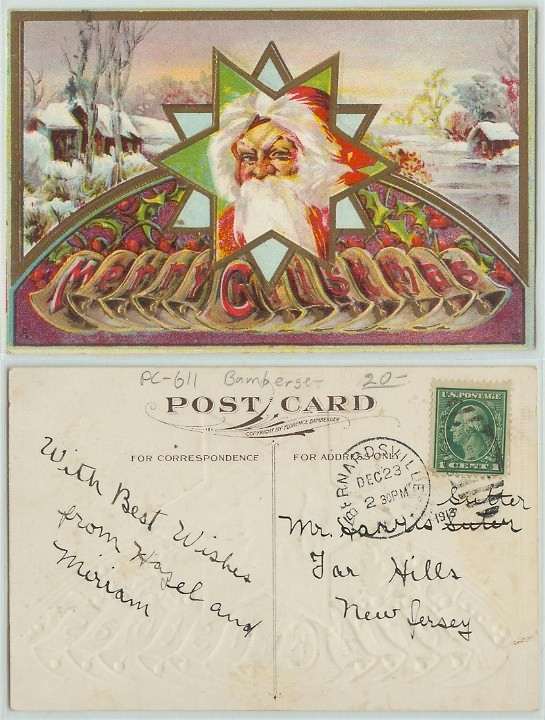 Merry Christmas
PC-611 Bamberger 20-
POST CARD
COPYRIGHT BY FLORENCE BAMBERGER
FOR CORRESPONDENCE
FOR ADDRESS ONLY
U.S. POSTAGE
1 CENT 1
BERNARDSVILLE
DEC 23
2 30PM
1913
With Best Wishes
from Hazel and
Miriam
Sutter
Mr. Harris Suter
Far Hills
New Jersey